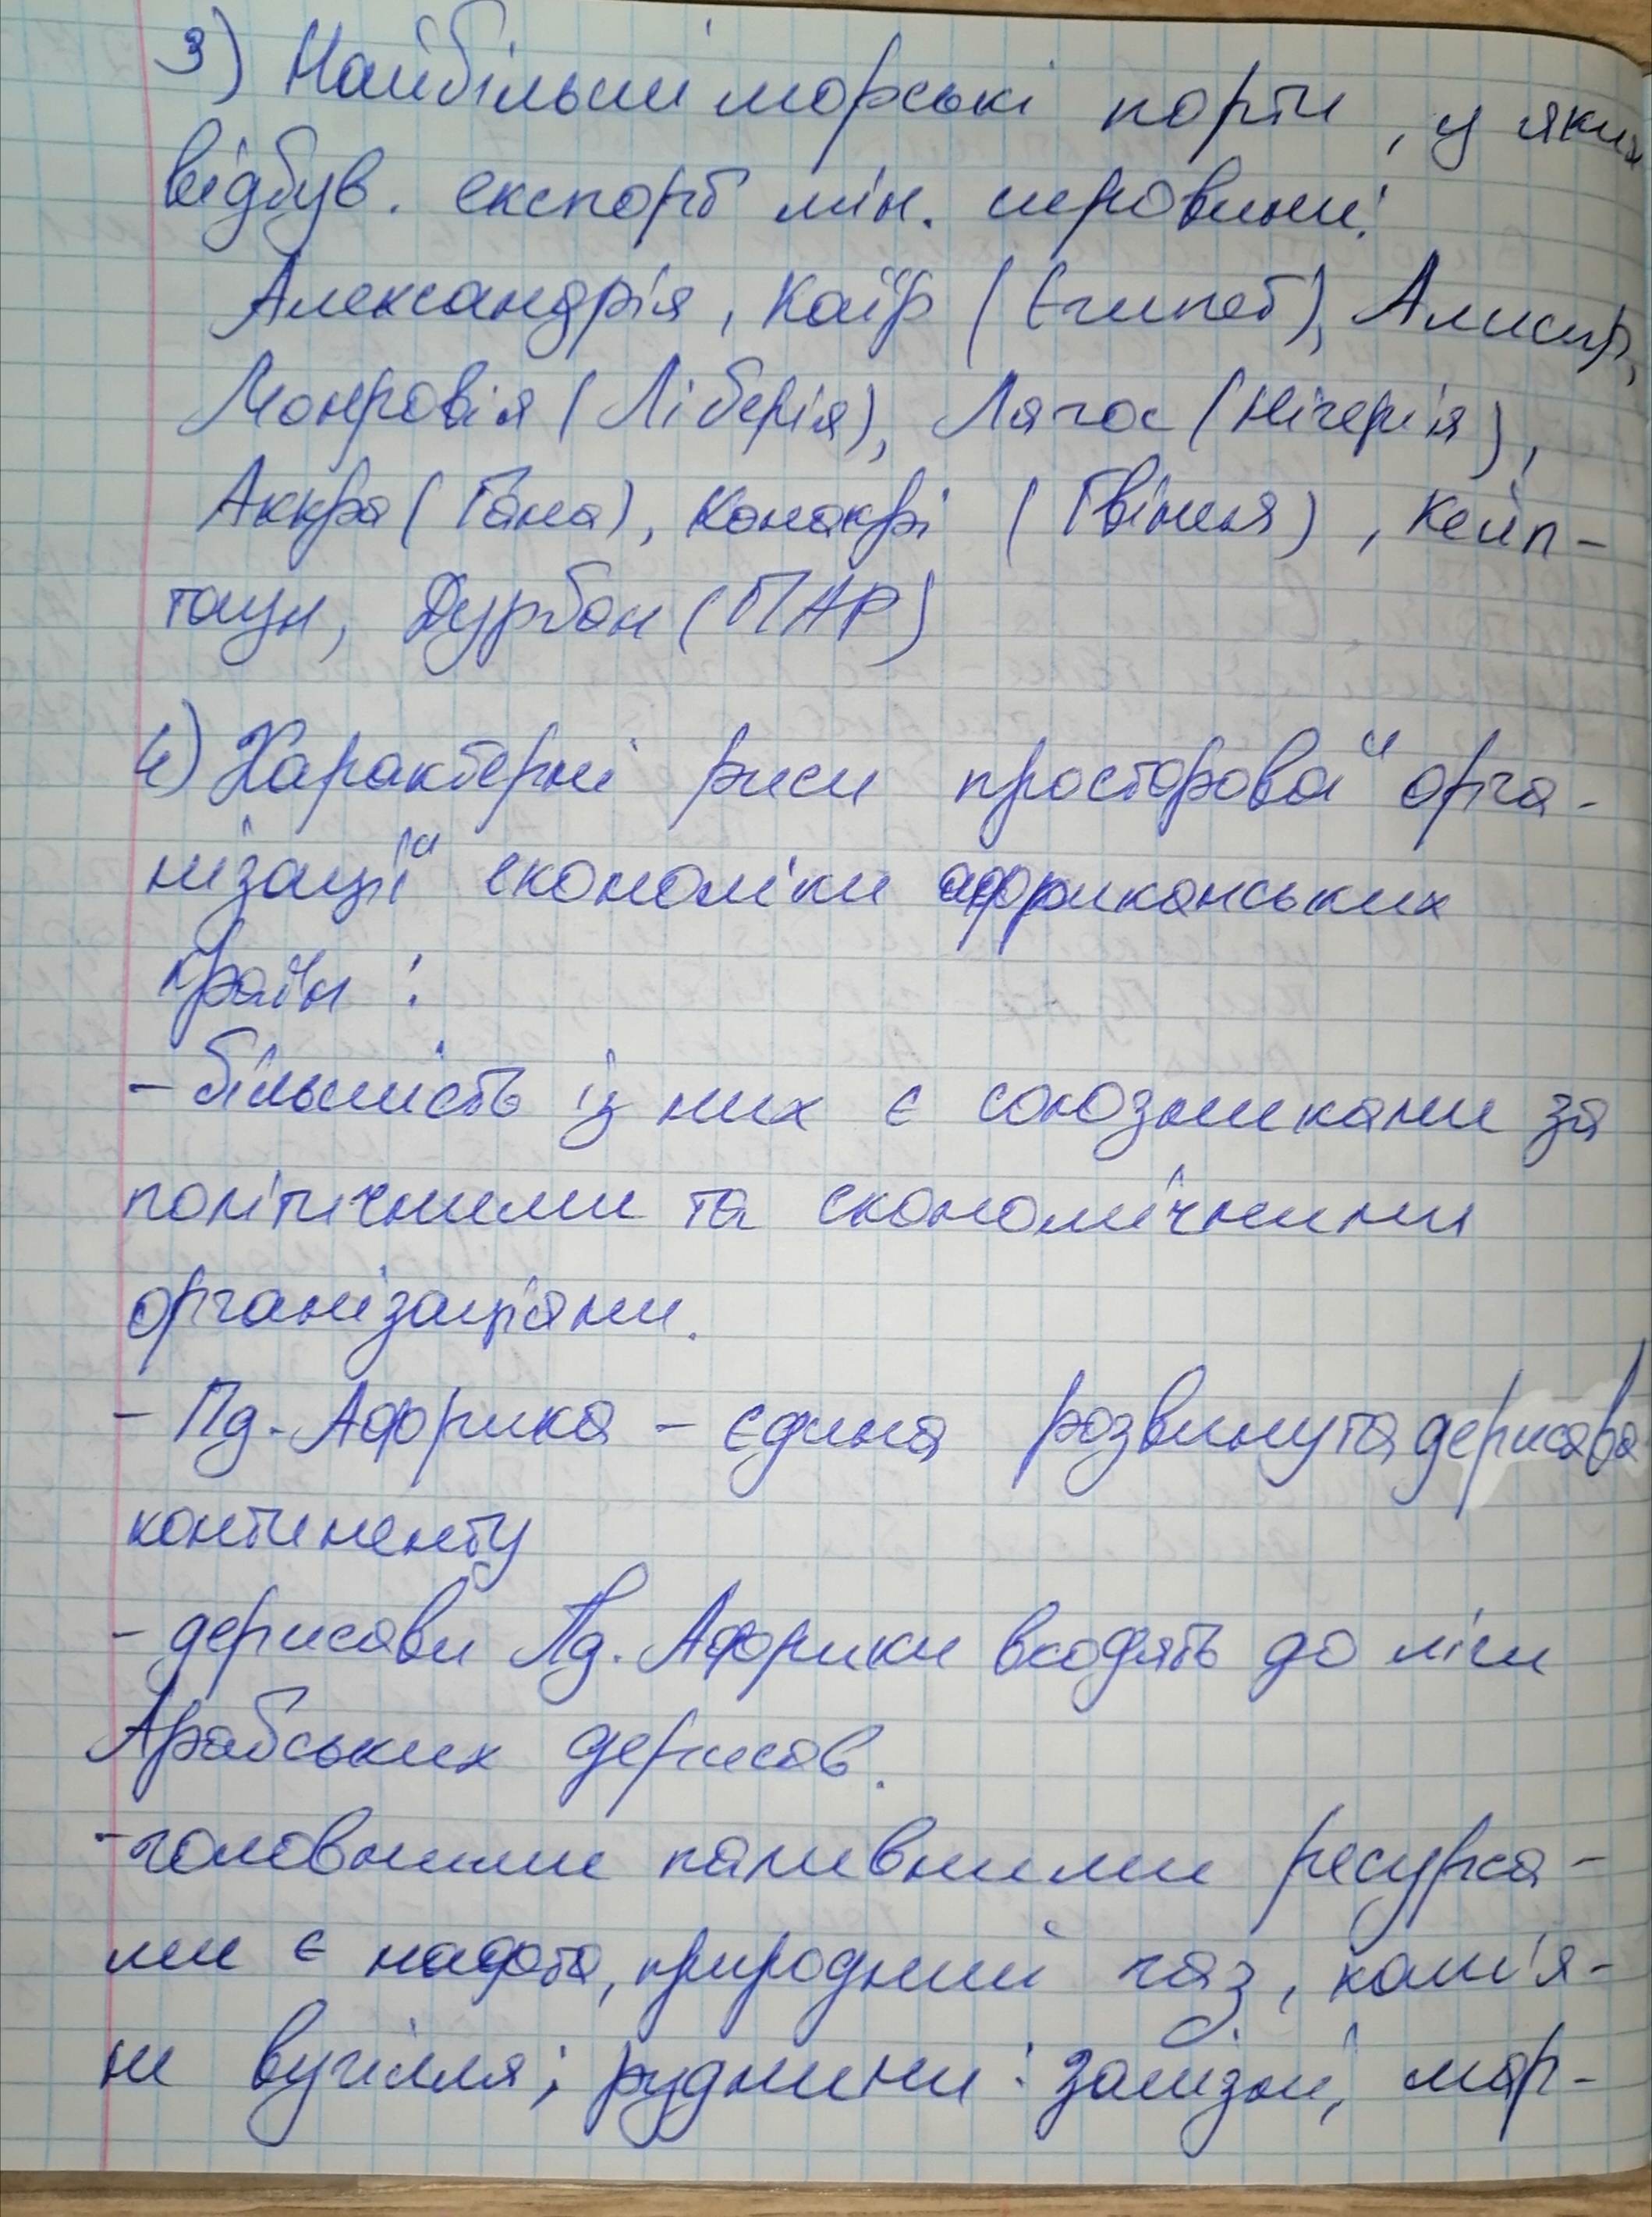 3) Найбільші морські порти, у яких
відбув. експорт мін. сировини:
Александрія, Каїр (Єгипет), Алжир,
Монровія (Ліберія), Лагос (Нігерія),
Аккра (Гана), Конакрі (Гвінея), Кейп-
таун, Дурбан (ПАР)
4) Характерні риси просторової орга-
нізації економіки африканських
країн:
- більшість із них є союзниками за
політичними та економічними
організаціями.
- Пд. Африка - єдина розвинута держава
континенту
- держави Пд. Африки входять до ліги
Арабських держав.
- головними паливними ресурса-
ми є нафта, природний газ, кам'я-
не вугілля; рудними: залізні, мар-